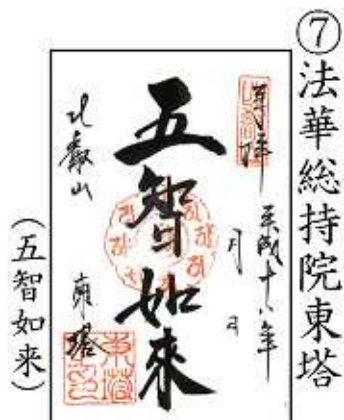 ⑦法華総持院東塔
奉拝
平成十八年
月 日
五智如来
比叡山 東塔
(五智如来)